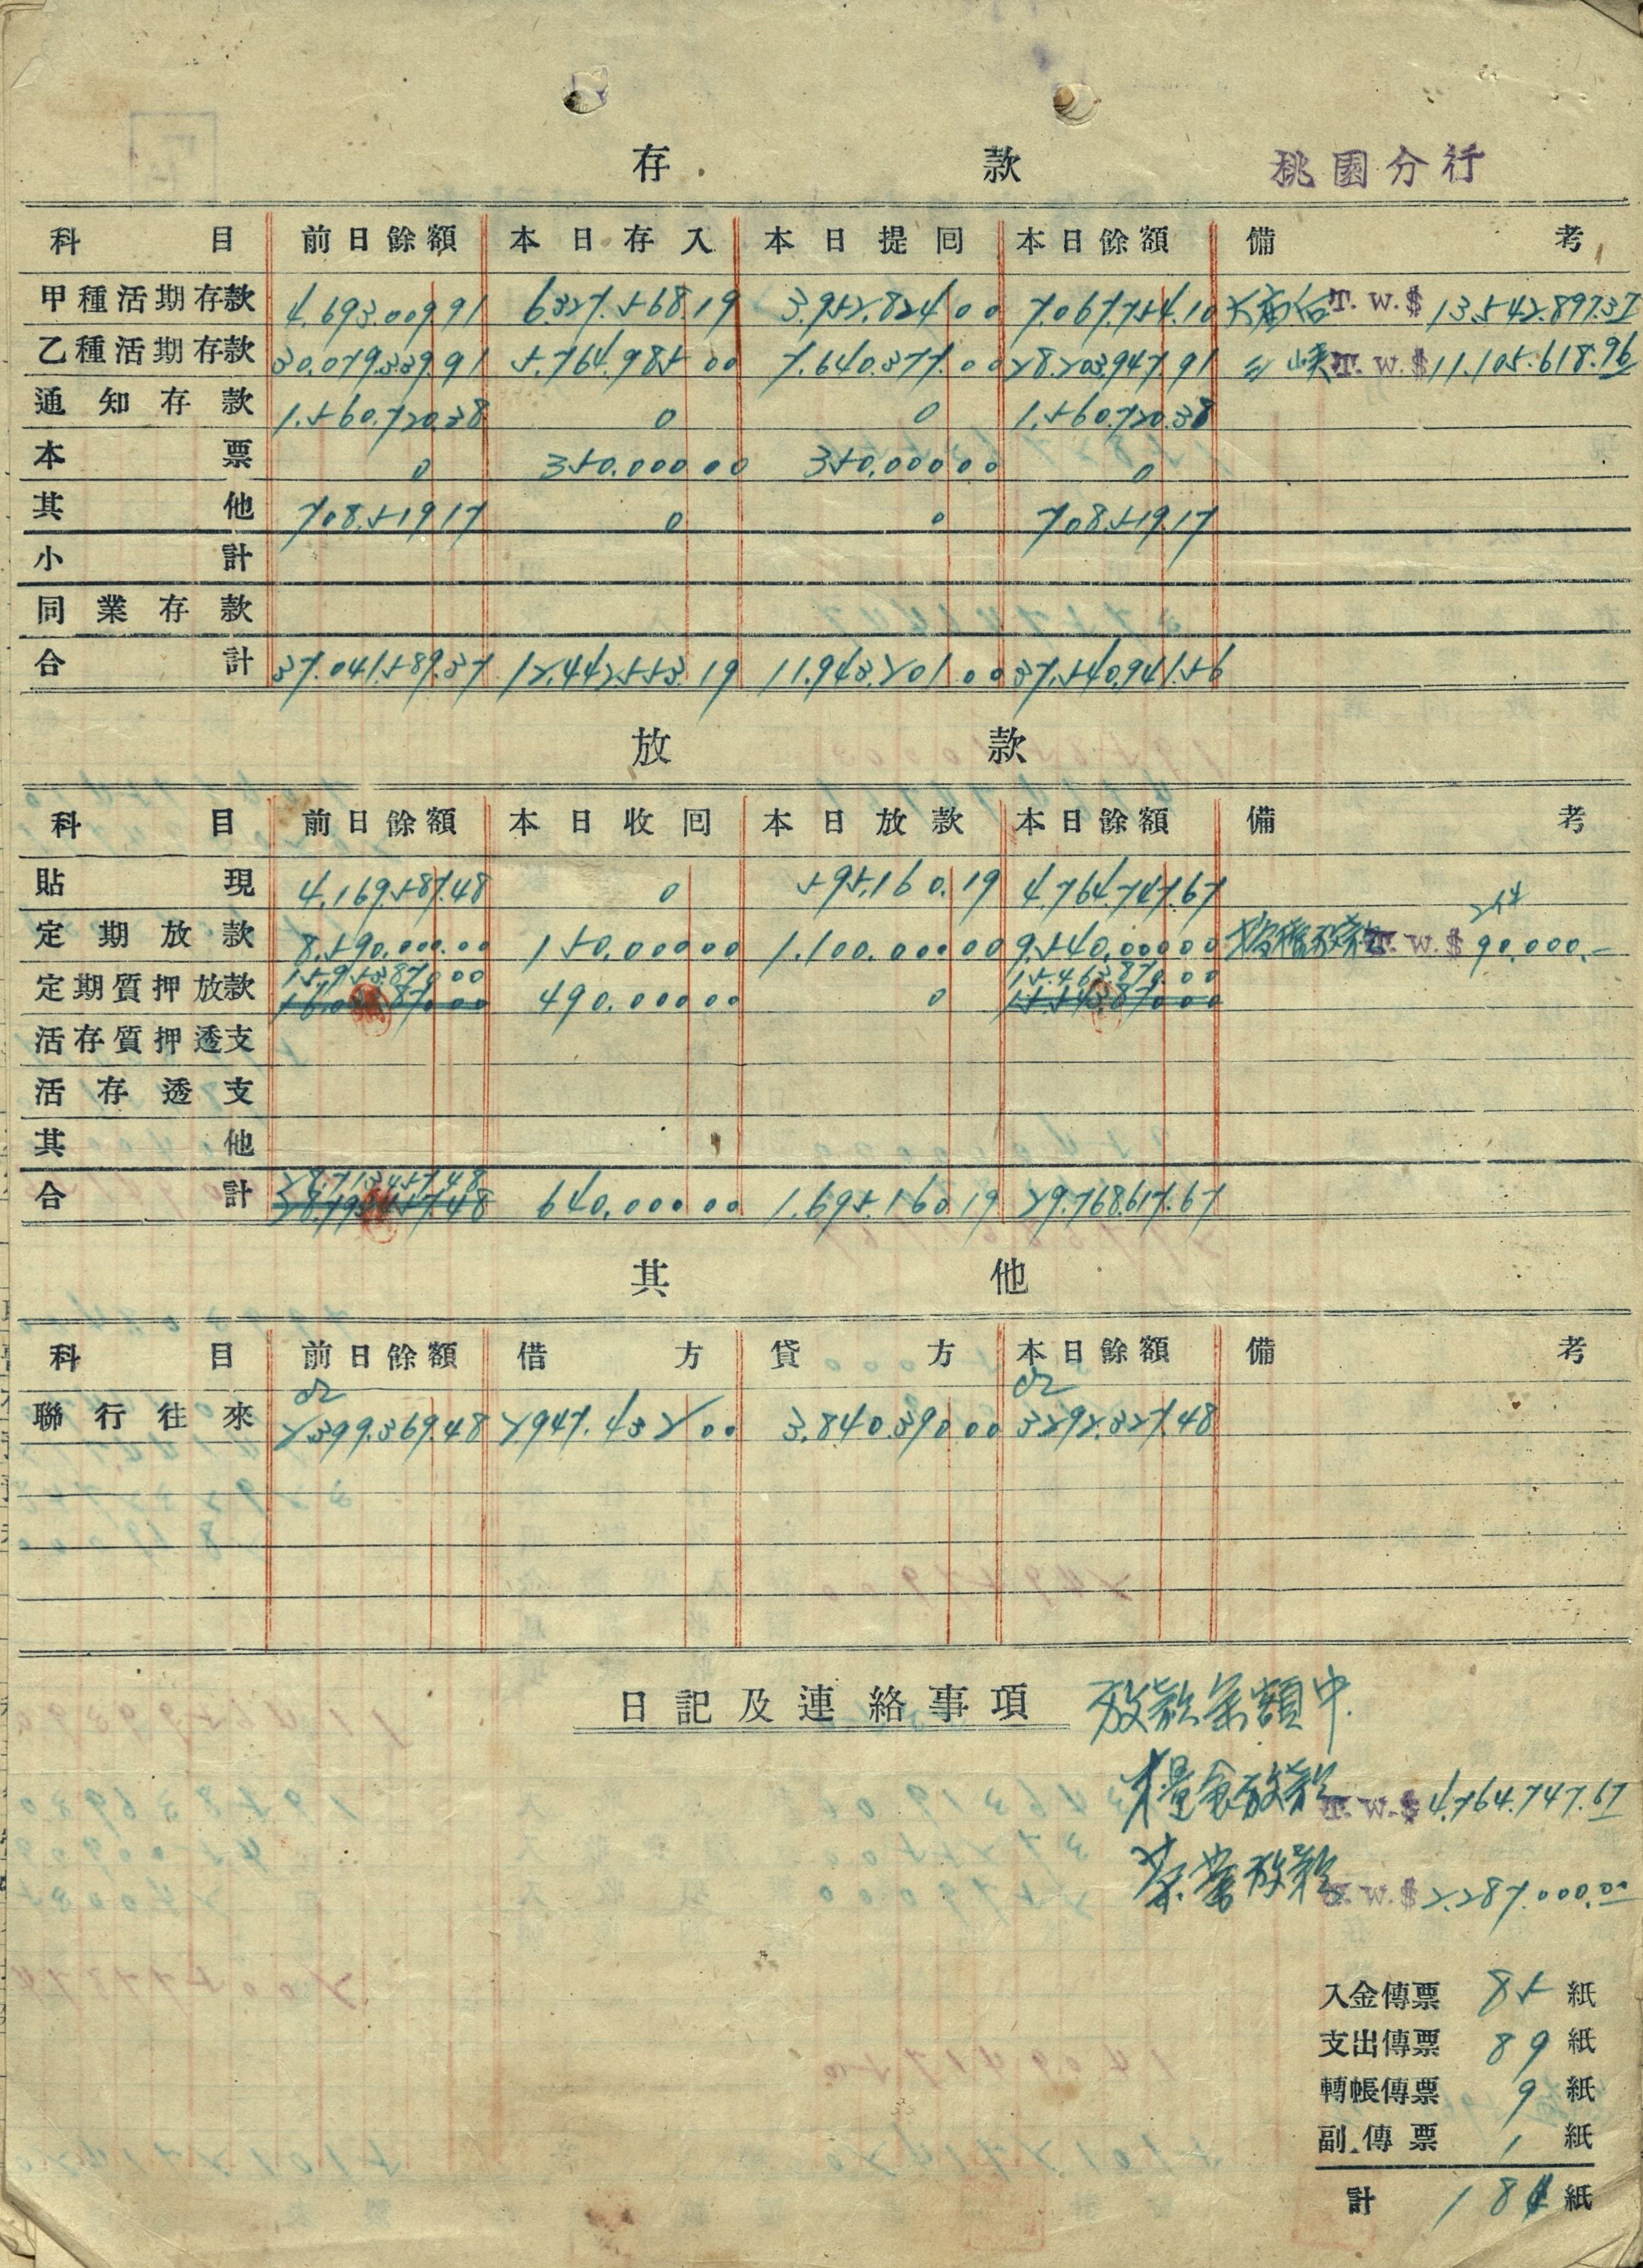 存款 桃園分行
科目 前日餘額 本日存入 本日提回 本日餘額 備考
甲種活期存款 4.693.009.91 6.327.568.19 3.952.824.00 7.067.754.10 T.W.$ 13.542.897.37
乙種活期存款 30.079.339.91 5.764.985.00 7.640.377.00 28.203.947.91 三峽 T.W.$ 11.105.618.96
通知存款 1.560.720.38 0 0 1.560.720.38
本票 0 350.000.00 350.000.00 0
其他 708.519.17 0 0 708.519.17
小計
同業存款
合計 37.041.589.37 12.442.553.19 11.943.201.00 37.540.941.56
放款
科目 前日餘額 本日收回 本日放款 本日餘額 備考
貼現 4.169.587.48 0 595.160.19 4.764.747.67
2件
定期放款 8.590.000.00 150.000.00 1.100.000.00 9.540.000.00 放款 T.W.$ 90.000.-
15.953.870.00 15.463.870.00
定期質押放款 16.033.870.00 490.000.00 0 15.543.870.00
活存質押透支
活存透支
其他
28.713.457.48
合計 28.793.457.48 640.000.00 1.695.160.19 29.768.617.67
其他
科目 前日餘額 借方 貸方 本日餘額 備考
聯行往來 2.399.369.48 2.947.432.00 3.840.390.00 3.292.327.48
日記及連絡事項 放款余額中
糧食放款 T.W.$ 4.764.747.67
茶業放款 T.W.$ 2.287.000.00
入金傳票 85 紙
支出傳票 89 紙
轉帳傳票 9 紙
副傳票 1 紙
計 184 紙